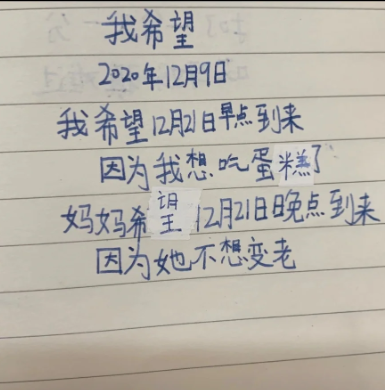 我希望
2020年12月9日
我希望12月21日早点到来
因为我想吃蛋糕了
妈妈希望12月21日晚点到来
因为她不想变老